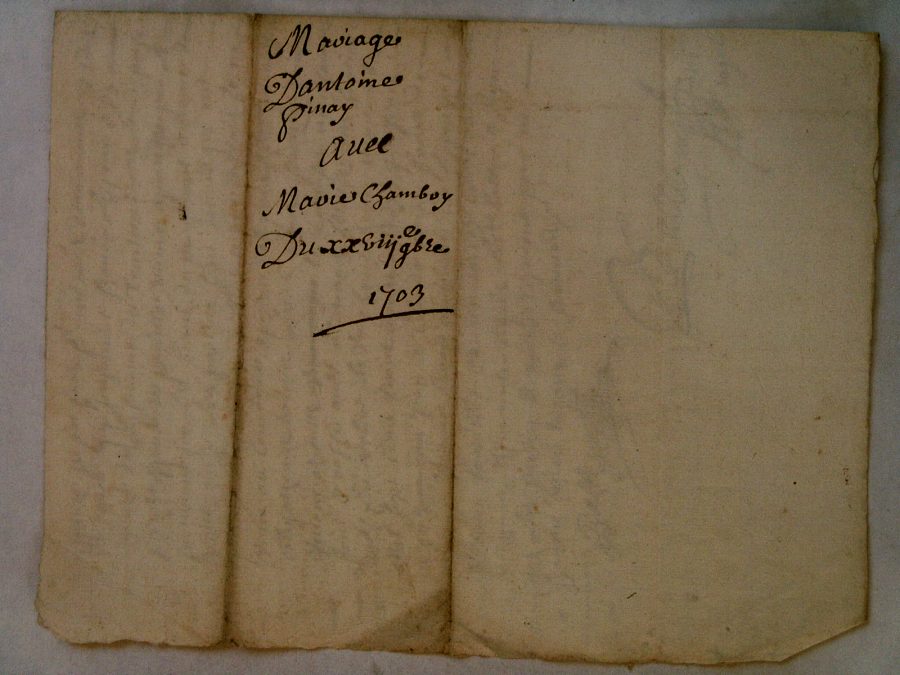 Mariage
Dantoine
pinay
Avec
Marie Chamboy
Du xxviije 9bre
1703